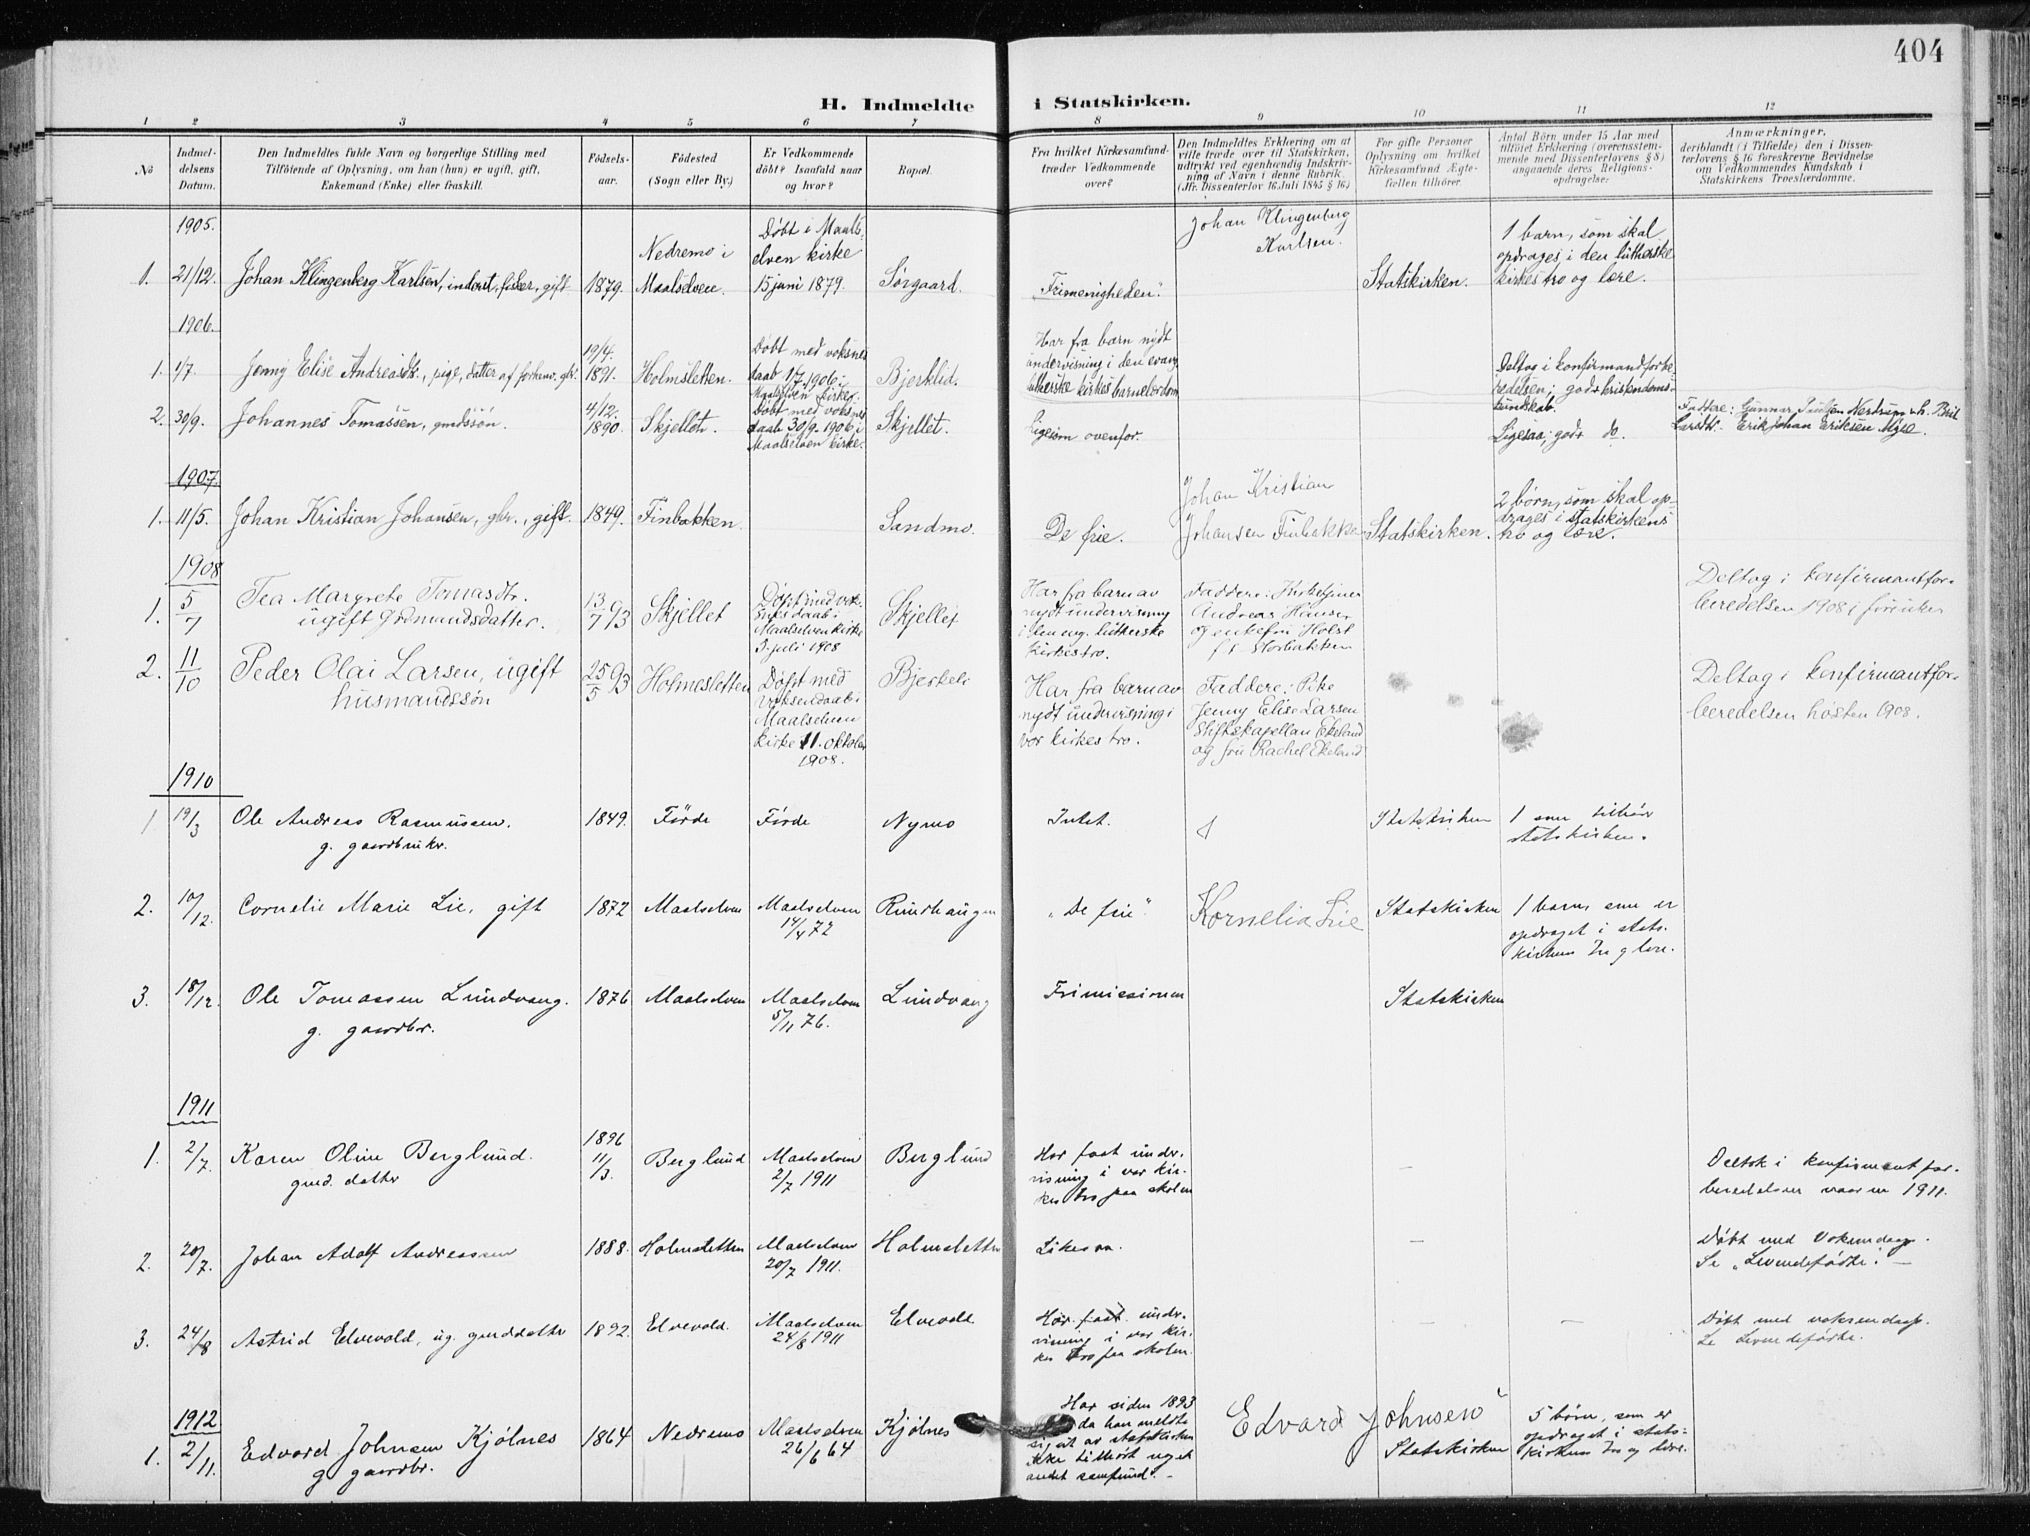 404
H. Indmeldte i Statskirken.
1 2 3 4 5 6 7 8 9 10 11 12
No
Indmel-
delsens
Datum.
Den Indmeldtes fulde Navn og borgerlige Stilling med
Tilföiende af Oplysning, om han (hun) er ugift, gift,
Enkemand (Enke) eller fraskilt.
Födsels-
aar.
Födested
(Sogn eller By.)
Er Vedkommende
döbt? Isaafald naar
og hvor?
Bopæl.
Fra hvilket Kirkesamfund
træder Vedkommende
over?
Den Indmeldtes Erklæring om at
ville træde over til Statskirken,
udtrykt ved egenhændig Indskriv-
ning af Navn i denne Rubrik.
(Jfr. Dissenterlov 16 Juli 1845 § 16)
For gifte Personer
Oplysning om hvilket
Kirkesamfund Ægte-
fællen tilhörer.
Antal Börn under 15 Aar med
tilföiet Erklæring (overensstem-
mende med Dissenterlovens § 8)
angaaende deres Religions-
opdragelse.
Anmærkninger,
deriblandt (i Tilfælde) den i Dissen-
terlovens § 16 foreskrevne Bevidnelse
om Vedkommendes Kundskab i
Statskirkens Troeslærdomme.
1905.
1. 21/12. Johan Klingenberg Karlsen, inderst, fisker, gift
1879.
Nedremo i
Maalselven.
Døbt i Maals-
elven kirke
15 juni 1879.
Sørgaard.
"Frimenigheden".
Johan Klingenberg
Karlsen.
Statskirken.
1 barn, som skal
opdrages i den lutherske
kirkes tro og lære.
1906.
1. 1/7. Jenny Elise Andreasdt., pige, datter af
19/4.
1891.
Holmsletten.
Døbt med voksen
daab 1/7 1906 i
Maalselven kirke.
Bjerklid.
Har fra barn nydt
undervisning i den evang.
lutherske kirkes barnelærdom
Deltog i konfirmandforbe-
redelsen; god kristendoms-
kundskab.
2. 30/9. Johannes Tomassen, gmdssøn.
4/12.
1890.
Skjellet.
Døbt med voksen
daab 30/9 1906 i
Maalselven kirke.
Skjellet.
Ligesom ovenfor.
Ligesaa; god do.
Faddere: Gunnar Nerdrum
Larsdt. Erik Johan Eriksen Myre.
1907.
1. 11/5. Johan Kristian Johansen, gbr., gift.
1849.
Finbakken.
Sandmo.
De frie.
Johan Kristian
Johansen Finbakken
Statskirken.
2 børn, som skal op-
drages i statskirkens
tro og lære.
1908
1. 5/7 Tea Margrete Tomasdtr.
ugift Gdmandsdatter.
13/7 93
Skjellet
Døpt med vok-
senes daab i
Maalselven kirke
5. juli 1908
Skjellet
Har fra barn av
nydt undervisning
i den ev. lutherske
kirkes tro.
Faddere: Kirketjener
Andreas Hansen
og enkefru Holst
Deltog i konfirmantfor-
beredelsen 1908 i
2. 11/10 Peder Olai Larsen, ugift
husmandssøn
25/5 93
Holmesletten
Døpt med
voksendaab i
Maalselven
kirke 11. oktober
1908.
Har fra barn av
nydt undervisning i
vor kirkes tro.
Faddere: Pike
Jenny Elise Larsen
Stiftskapellan Ekeland
og fru Rachel Ekeland
Deltog i konfirmantfor-
beredelsen høsten 1908.
1910
1 19/3 Ole Andreas Rasmussen.
g. gaardbruker.
1849.
Førde
Førde
Nymo
Intet.
Statskirken
1 som tilhører
statskirken.
2. 10/12. Cornelie Marie Lie, gift
1872
Maalselven
Maalselven
14/4 72
Runshaugen
"De frie".
Kornelia Lie
Statskirken
1 barn, som er
opdraget i stats-
kirkens tro og lære.
3. 18/12. Ole Tomassen Lundvang.
g. gaardbr.
1876
Maalselven
Maalselven
5/11 76.
Lundvang
Frimissionen
Statskirken
1911
1. 2/7. Karen Oline Berglund.
gmd. datter
1896
11/3.
Berglund
Maalselven
2/7 1911
Berglund
Har faat under-
visning i vor kir-
kes tro paa skolen
Deltok i konfirmantfor-
beredelsen vaaren 1911.
2. 20/7. Johan Adolf Andreassen
1888.
Holmsletten
Maalselven
20/7 1911.
Holmsletten
Likesaa.
Døbt med voksendaap.
Se "Levendefødte".
3. 24/8 Astrid Elvevold, ug. gmd.datter
1892.
Elvevold.
Maalselven
24/8 1911
Elvevold
Har faat under-
visning i vor kir-
kes tro paa skolen.
Døbt med voksendaap.
Se Levendefødte.
1912
1. 2/11. Edvard Johnsen Kjølnes
g gaardbr.
1864
Nedremo
Maalselven
26/6 64
Kjølnes
Har siden 1893
da han meldte
sig ut av statskirken
ikke tilhørt noget
andet samfund.
Edvard Johnsen
Statskirken
5 børn, som er
opdraget i stats-
kirkens tro og lære.